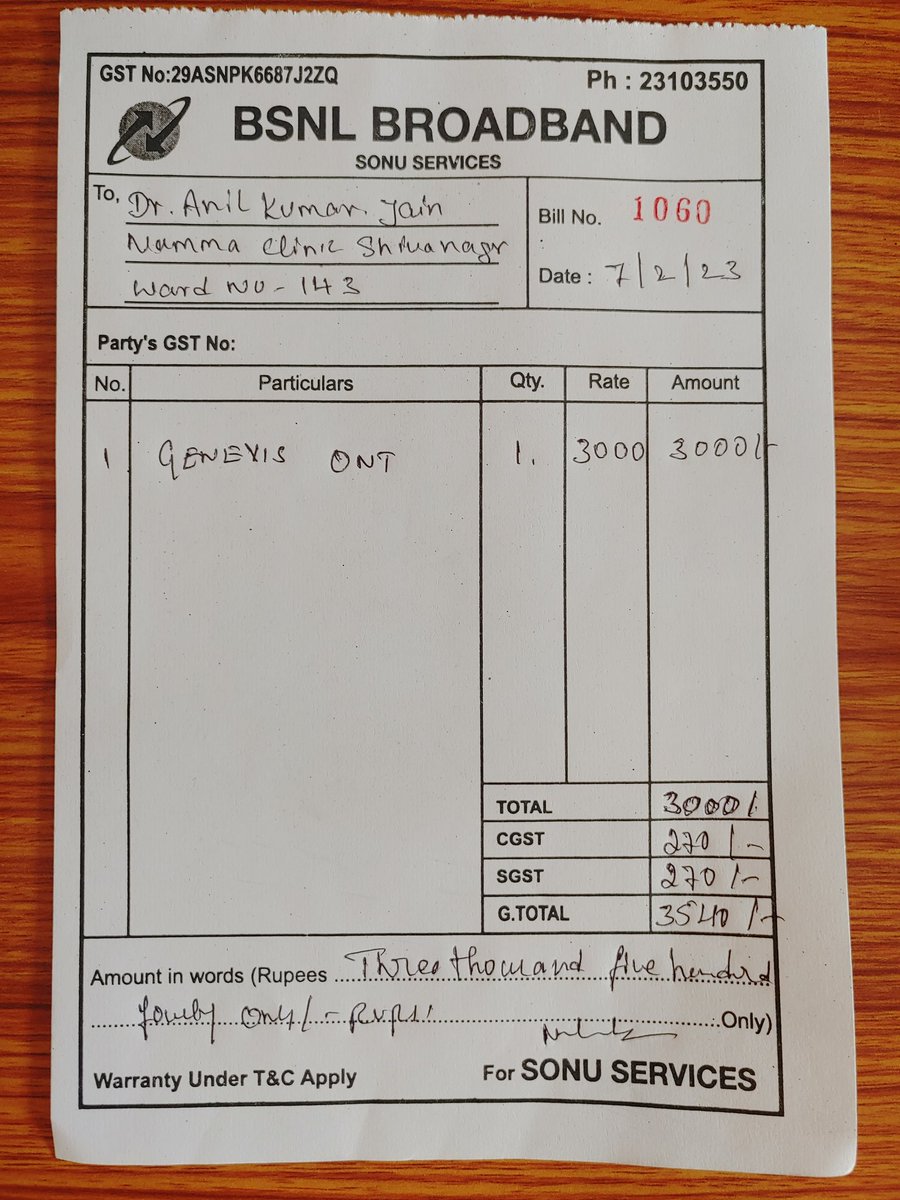 GST No:29ASNPK6687J2ZQ Ph : 23103550
BSNL BROADBAND
SONU SERVICES
To, Dr. Anil Kumar. Jain
Namma Clinic Shivanagr
Ward No - 143
Bill No. 1060
:
Date : 7/2/23
Party's GST No:
No. Particulars Qty. Rate Amount
1 GENEXIS ONT 1. 3000 3000/-
TOTAL 3000/-
CGST 270/-
SGST 270/-
G.TOTAL 3540/-
Amount in words (Rupees Three thousand five hundrid
Fourty Only/- Only)
Warranty Under T&C Apply For SONU SERVICES